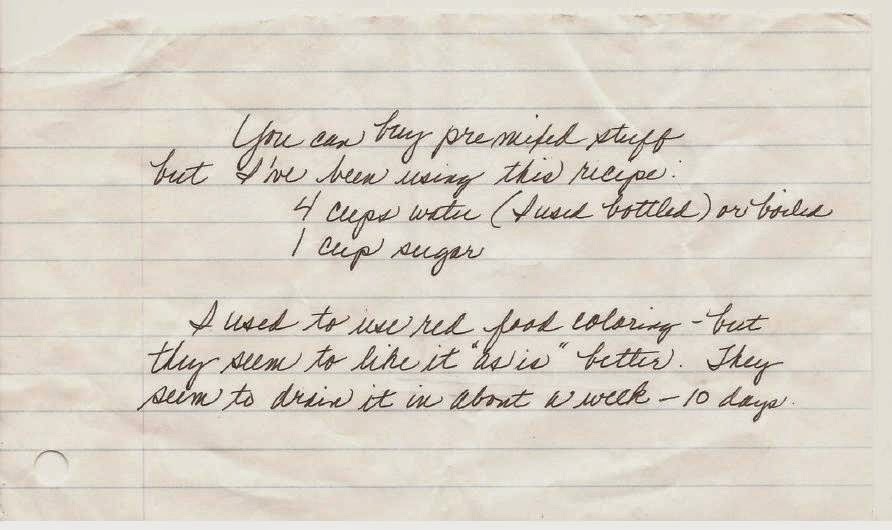 You can buy premixed stuff
but I've been using this recipe:
4 cups water (I used bottled) or boiled
1 cup sugar
I used to use red food coloring - but
they seem to like it "as is" better. They
seem to drain it in about a week - 10 days.